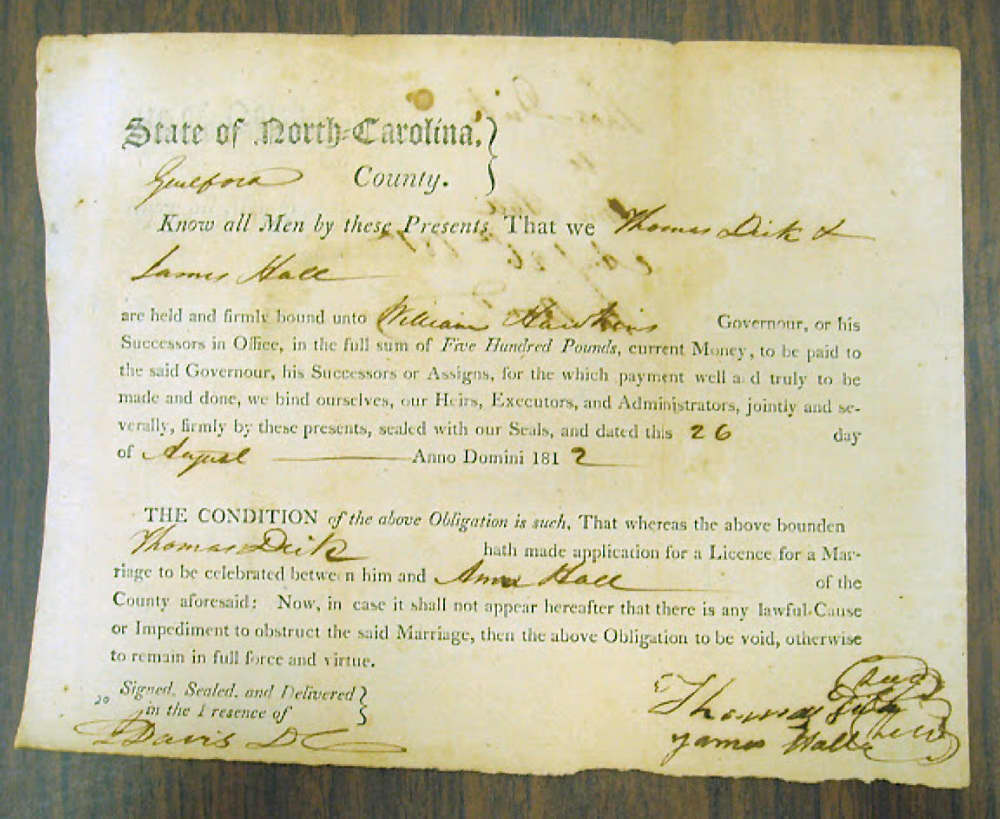 State of North-Carolina,
Guilford County.
Know all Men by these Presents, That we Thomas Dick &
James Hall
are held and firmly bound unto William Hawkins Governour, or his
Successors in Office, in the full sum of Five Hundred Pounds, current Money, to be paid to
the said Governour, his Successors or Assigns, for the which payment well and truly to be
made and done, we bind ourselves, our Heirs, Executors, and Administrators, jointly and se-
verally, firmly by these presents, sealed with our Seals, and dated this 26 day
of August Anno Domini 1812
THE CONDITION of the above Obligation is such, That whereas the above bounden
Thomas Dick hath made application for a Licence for a Mar-
riage to be celebrated between him and Anna Hall of the
County aforesaid: Now, in case it shall not appear hereafter that there is any lawful Cause
or Impediment to obstruct the said Marriage, then the above Obligation to be void, otherwise
to remain in full force and virtue.
Signed, Sealed, and Delivered
in the Presence of
Davis DC
Thomas Dick
James Hall